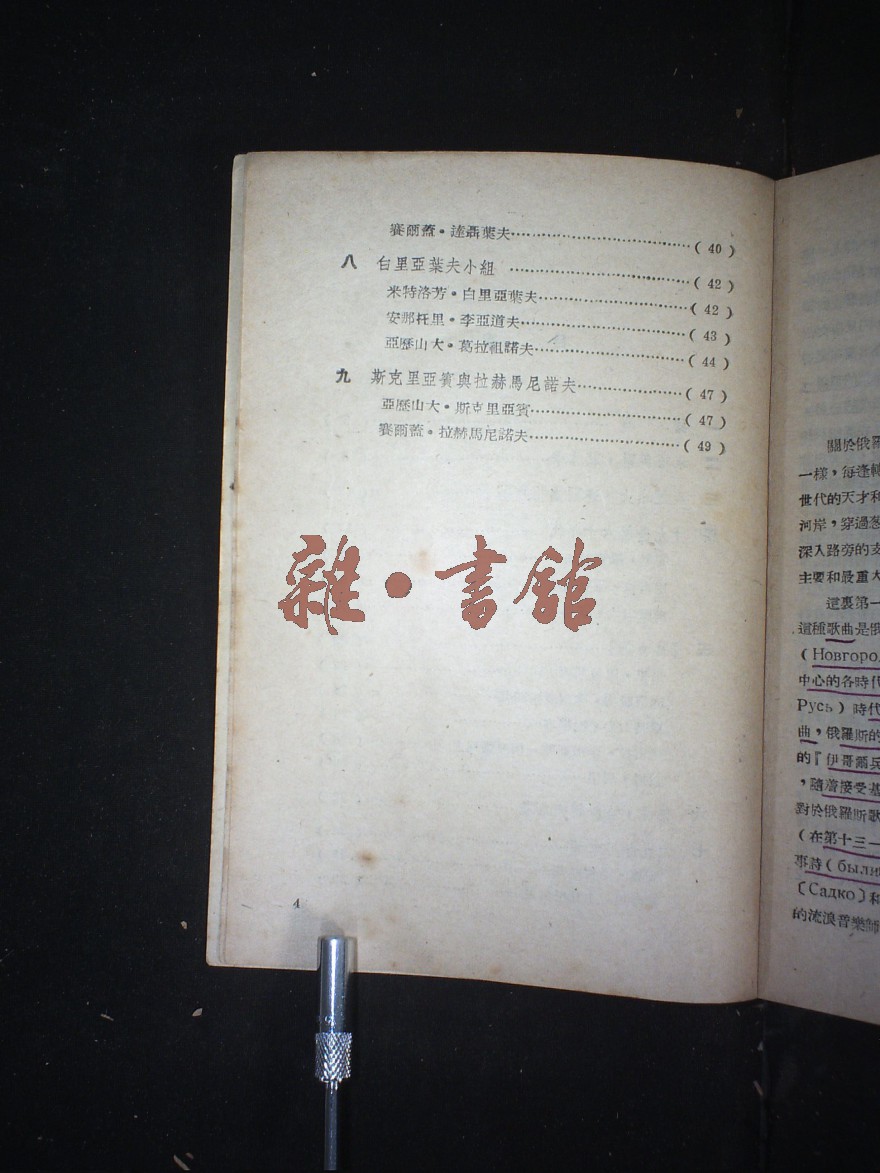 賽爾蓋・達聶葉夫……(40)
八 白里亞葉夫小組……(42)
米特洛芳・白里亞葉夫……(42)
安那托里・李亞道夫……(43)
亞歷山大・葛拉祖諾夫……(44)
九 斯克里亞賓與拉赫馬尼諾夫……(47)
亞歷山大・斯克里亞賓……(47)
賽爾蓋・拉赫馬尼諾夫……(49)
雜・書舘
4
關於俄羅
一樣，每逢轉
世代的天才和
河岸，穿過葱
深入路旁的支
主要和最重大
這裏第一
這種歌曲是俄
(Новгоро
中心的各時代
Русь）時代
曲，俄羅斯的
的『伊哥爾兵
，隨着接受基
對於俄羅斯歌
(在第十三一
事詩(былин
〔Садко〕和
的流浪音樂師